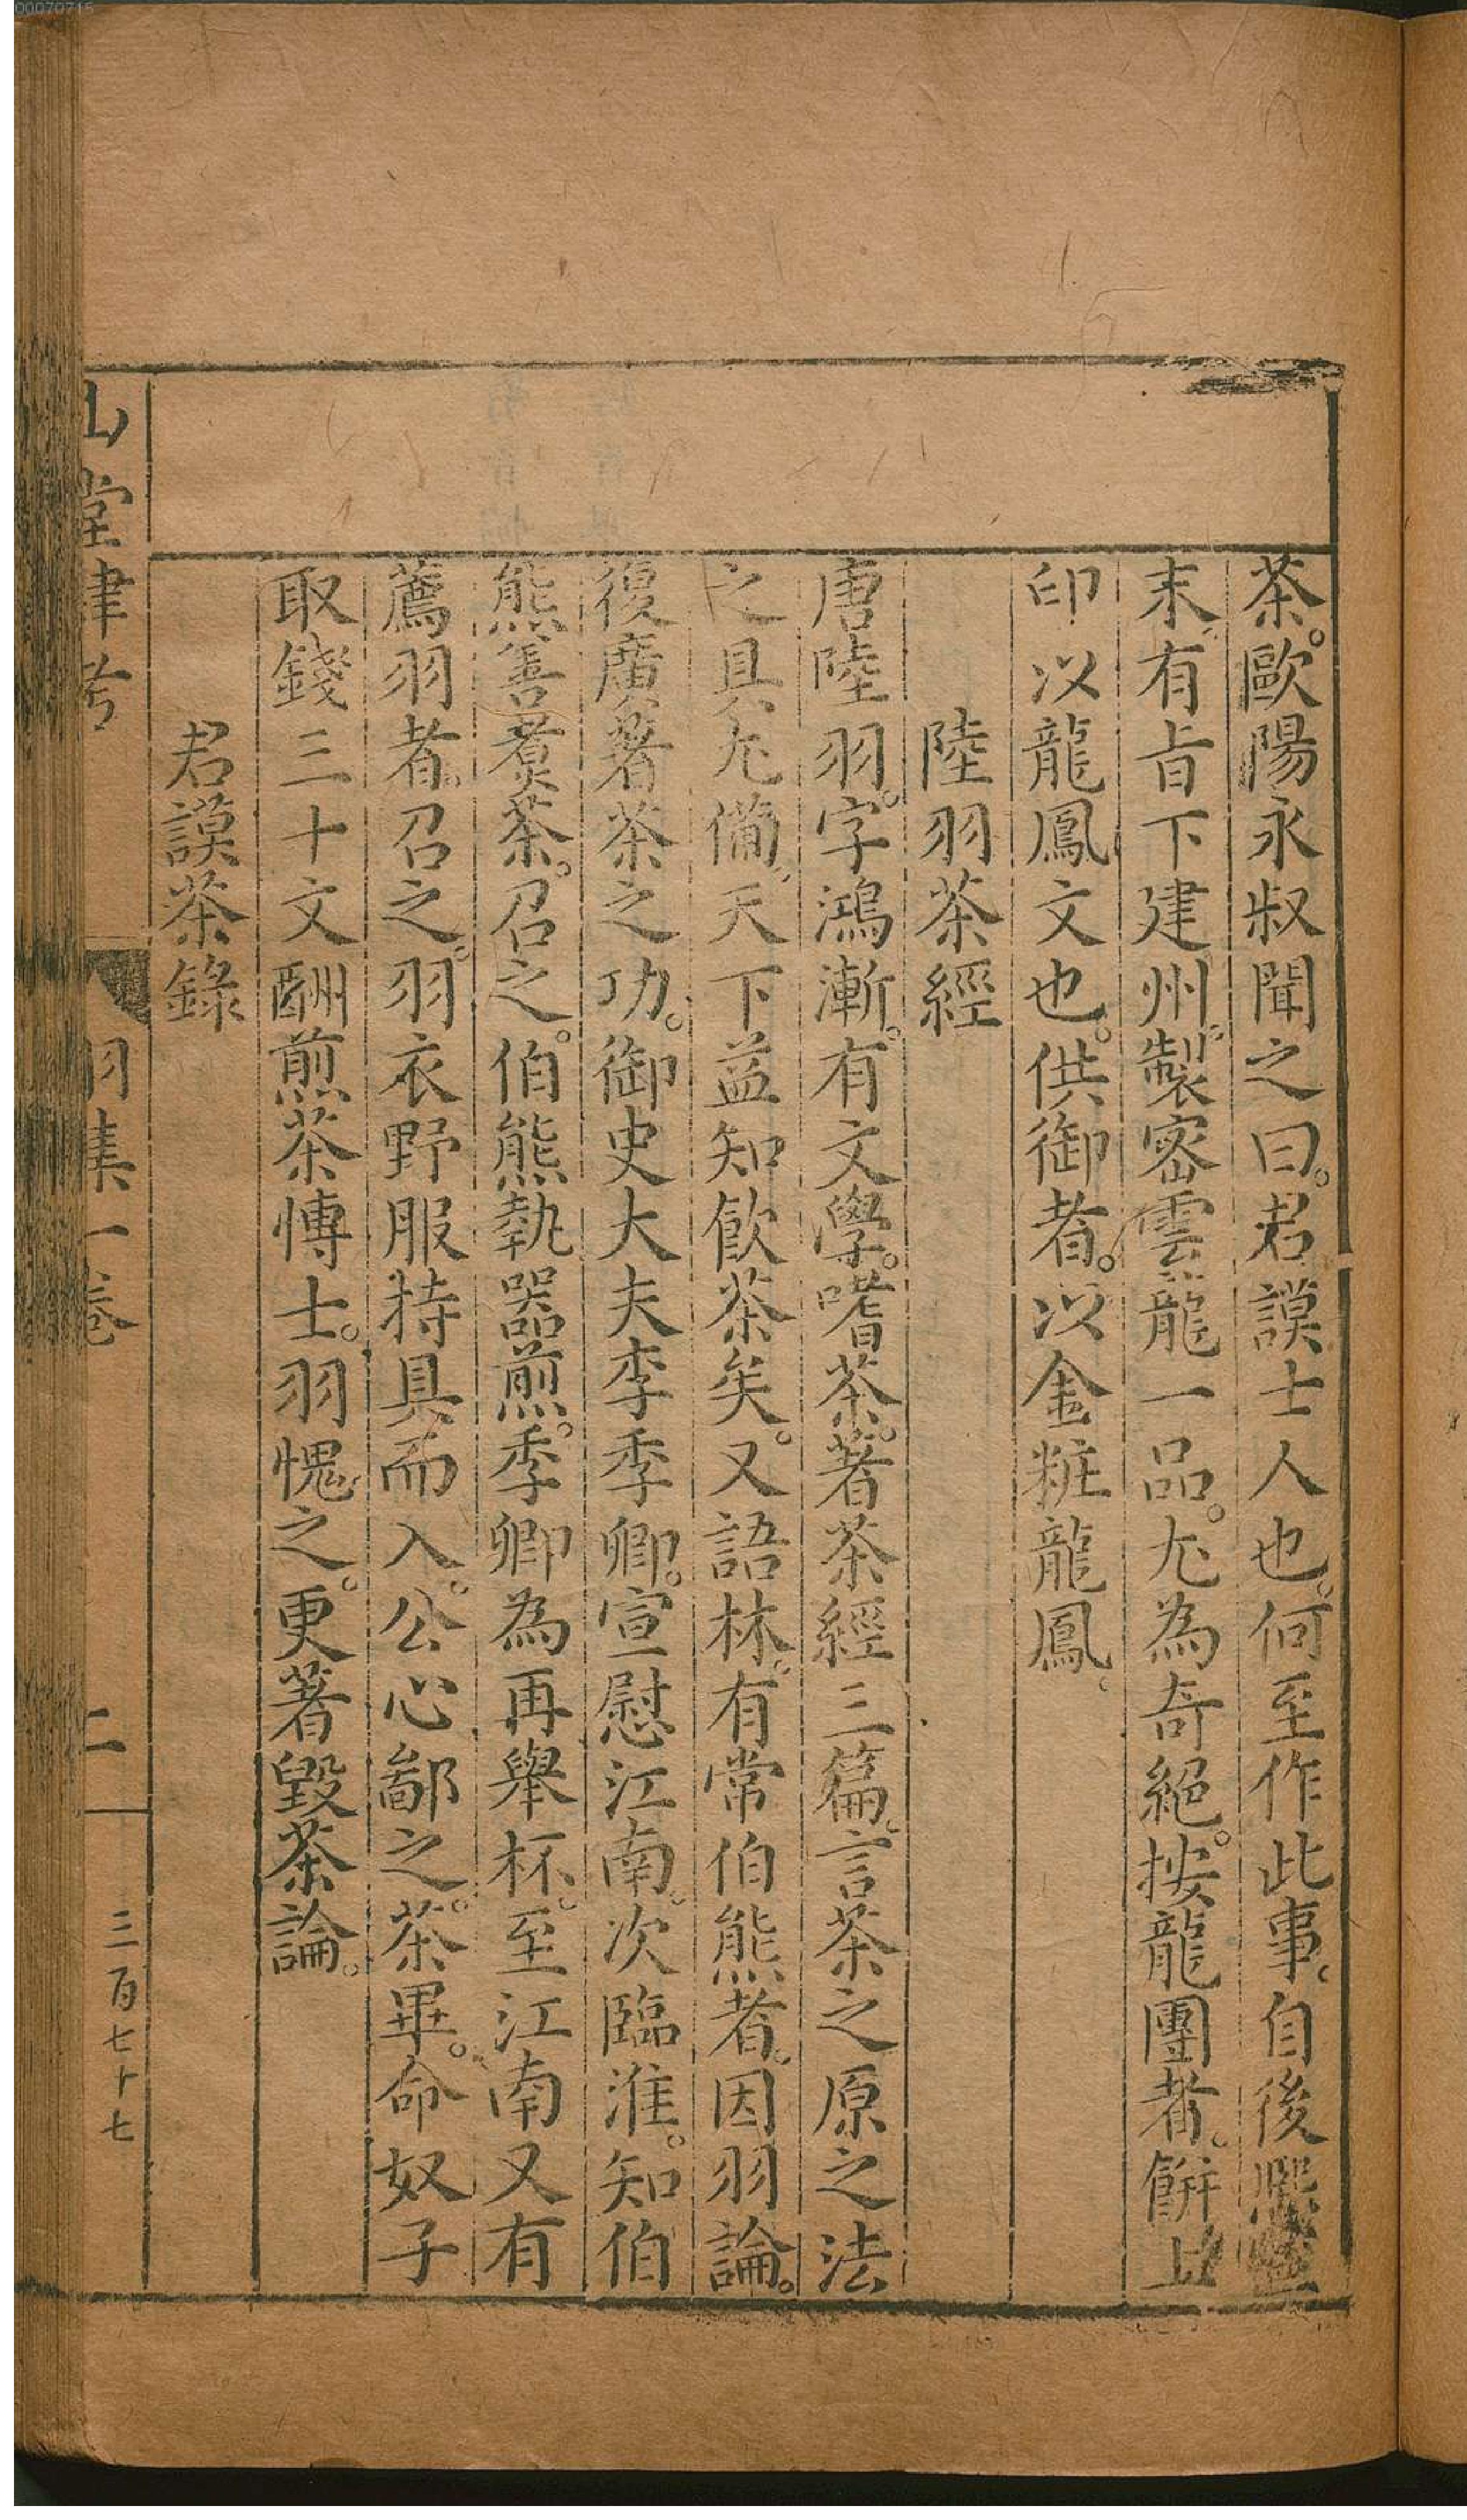 茶。歐陽永叔聞之曰。君謨士人也。何至作此事。自後熙寧
末。有旨下建州。製密雲龍一品。尤為奇絕。按龍團者。餅上
印以龍鳳文也。供御者。以金粧龍鳳。
陸羽茶經
唐陸羽。字鴻漸。有文學。嗜茶。著茶經三篇。言茶之原之法
之具尤備。天下益知飲茶矣。又語林。有常伯熊者。因羽論。
復廣著茶之功。御史大夫李季卿。宣慰江南。次臨淮。知伯
熊善煑茶。召之。伯熊執器煎。季卿為再舉杯。至江南又有
薦羽者。召之。羽衣野服持具而入。公心鄙之。茶畢。命奴子
取錢三十文酬煎茶博士。羽愧之。更著毀茶論。
君謨茶錄
山堂肆考
羽集一卷
二
三百七十七
00070715